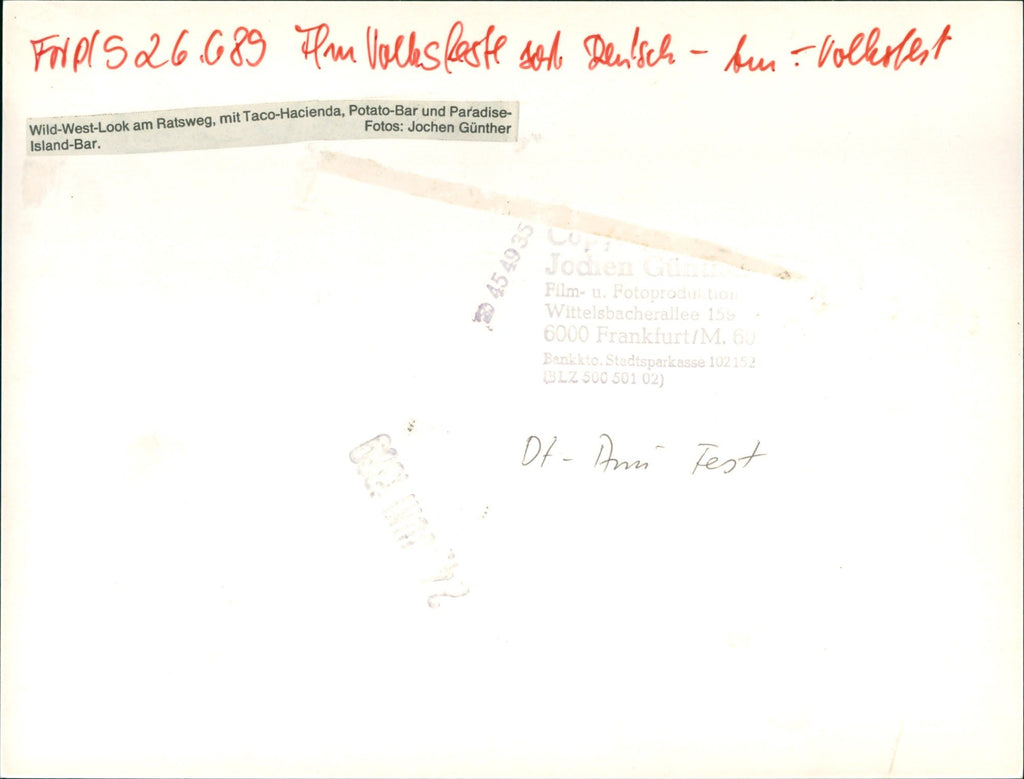 26.6.89 Ffm Volksfeste Deutsch - Am. - Volksfest
Wild-West-Look am Ratsweg, mit Taco-Hacienda, Potato-Bar und Paradise-
Island-Bar.
Fotos: Jochen Günther
☎ 45 49 35
Jochen
Film- u. Fotoproduktion
Wittelsbacherallee 159
6000 Frankfurt/M. 60
Bankkto. Stadtsparkasse 102 152
(BLZ 500 501 02)
Dt - Ami Fest
JUNI 1989